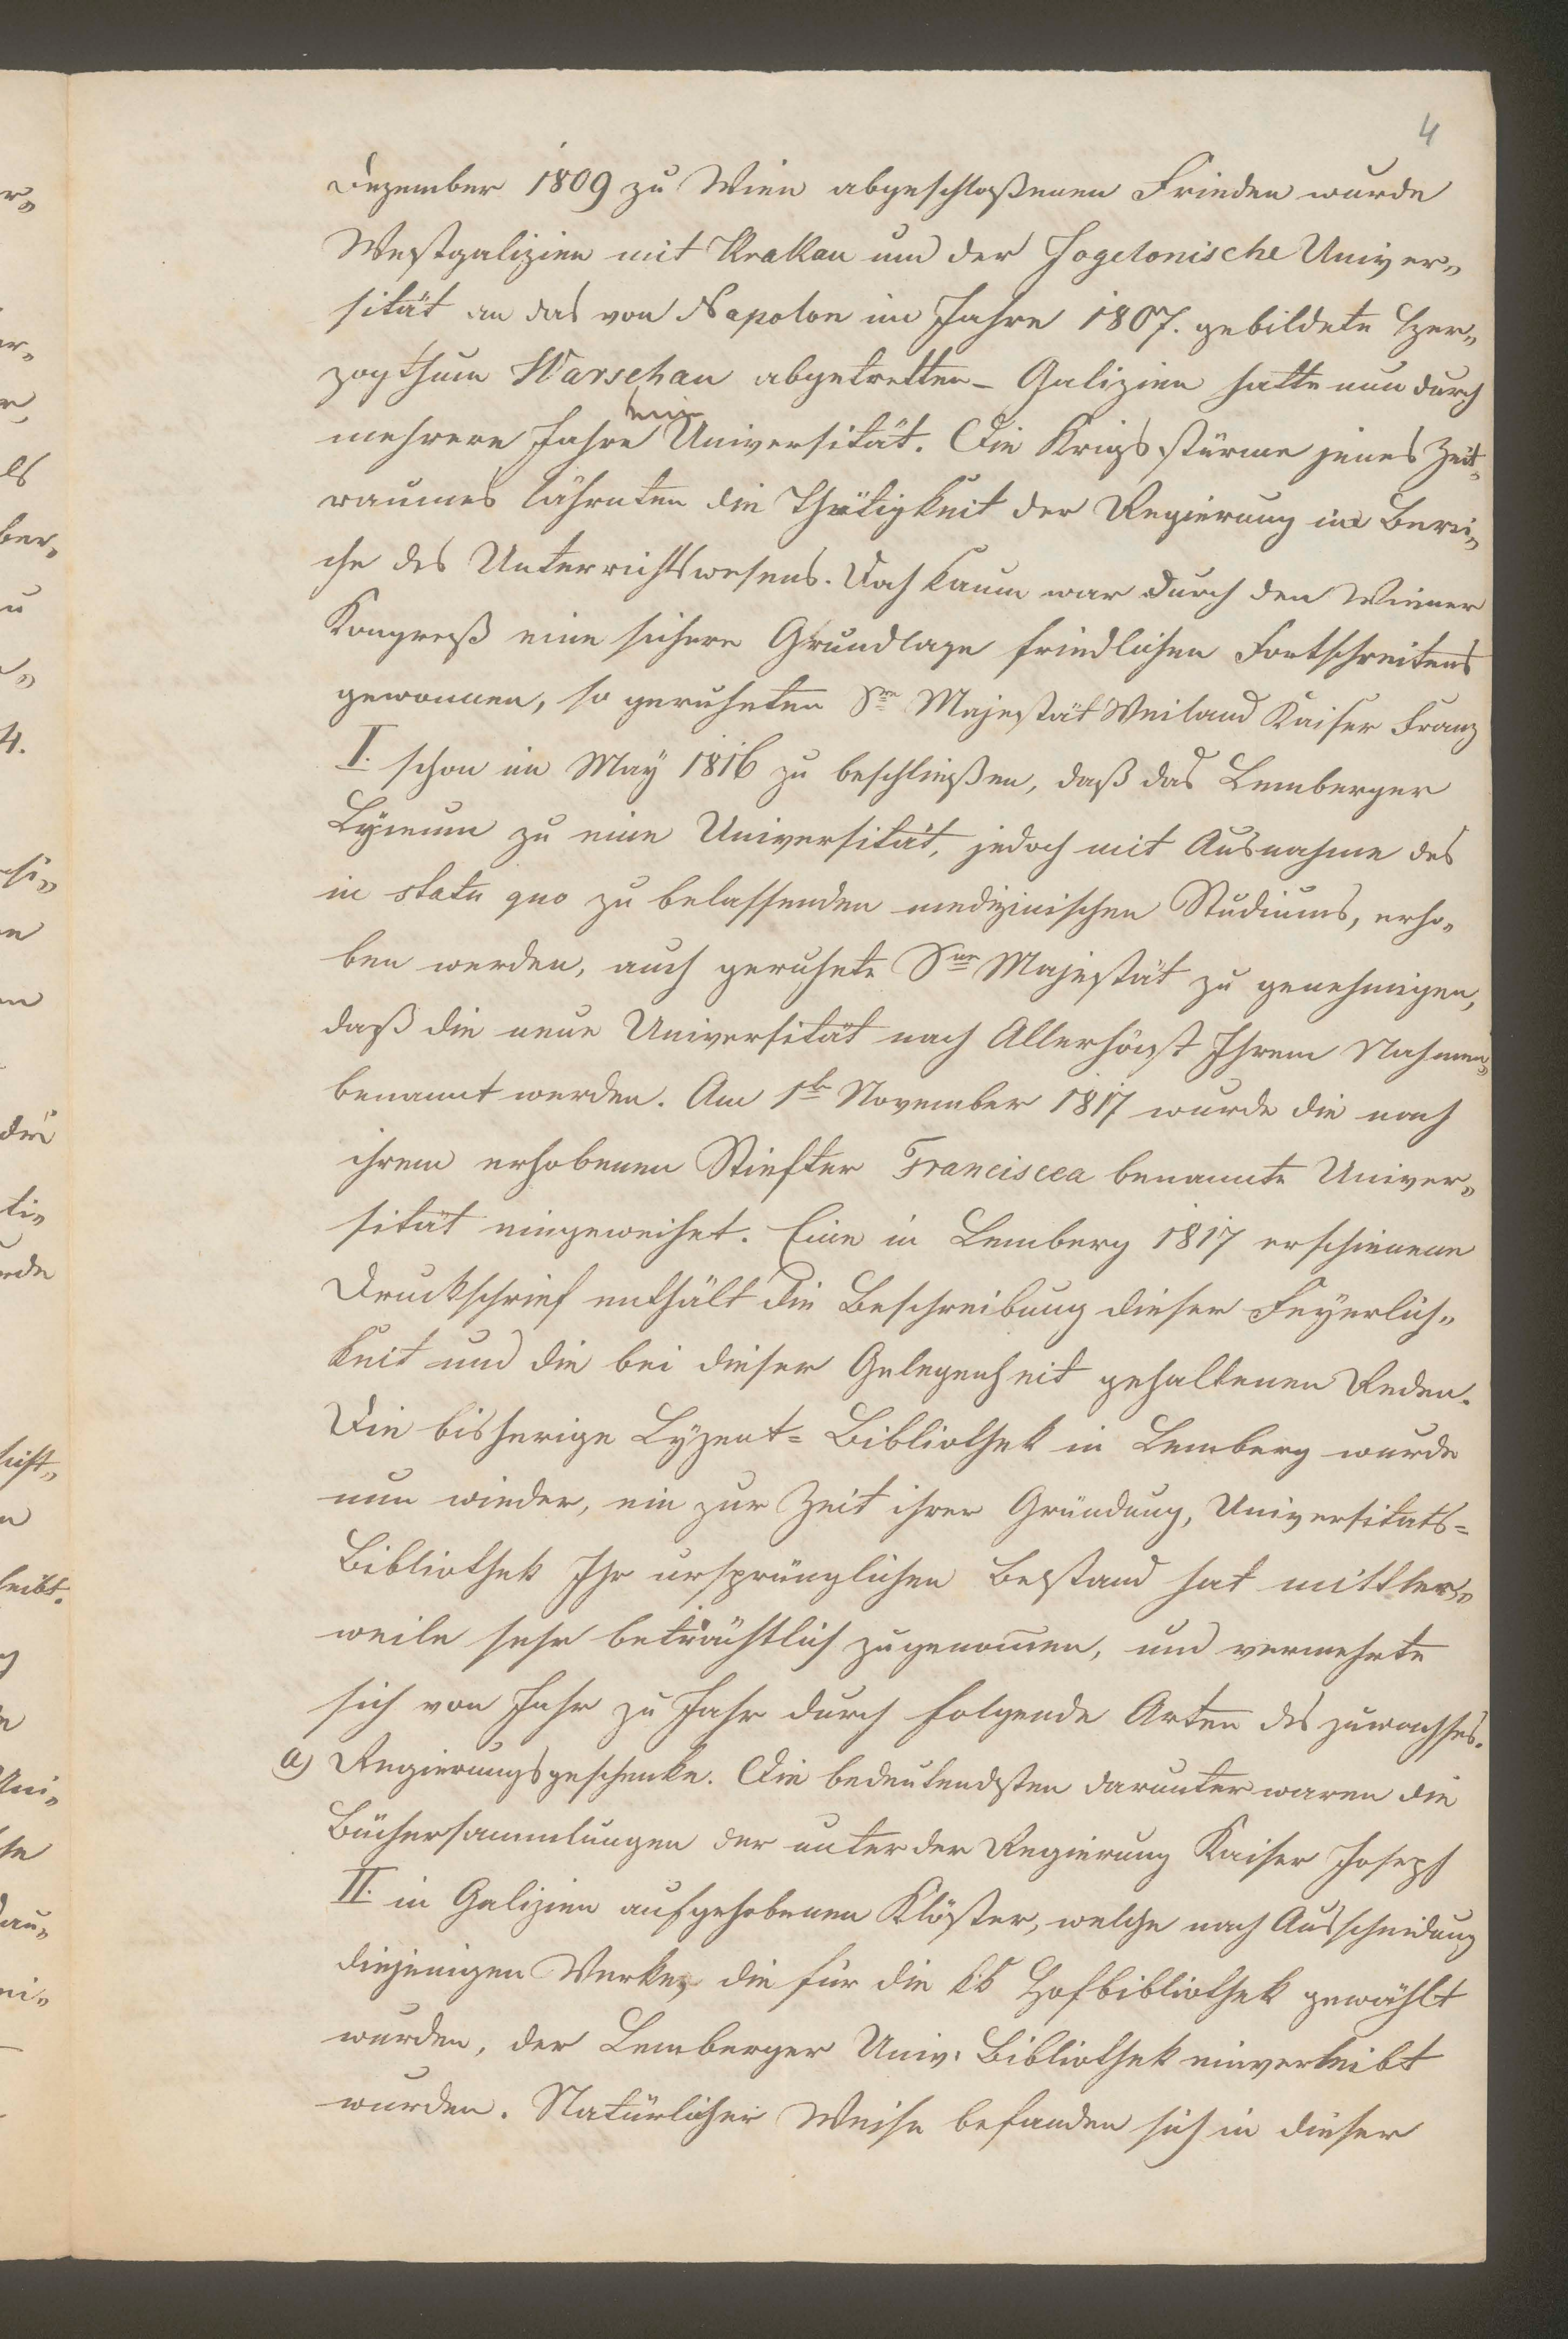 4
Dezember 1809 zu Wien abgeschloßenen Frieden wurde
Westgalizien mit Krakau und der Jagelonische Univer„
sität an das von Napolon im Jahre 1807. gebildete Her„
zogthum Warschau abgetretten – Galizien hatte nun durch
mehrere Jahre keine Universität. Die Krigsstürme jenes Zeit„
raumes lähmten die Thätigkeit der Regierung im Berei„
che des Unterrichtswesens. Doch kaum war durch den Wiener
Kongreß eine sichere Grundlage friedlichen Fortschreitens
gewonnen, so geruheten Se Majestät Weiland Kaiser Franz
I. schon im May 1816 zu beschließen, daß das Lemberger
Lyceum zu eine Universität, jedoch mit Ausnahme des
in statu quo zu belassenden medizinischen Studiums, erho„
ben werden, auch geruhete Se Majestät zu genehmigen,
daß die neue Universität nach Allerhöchst Ihrem Nahmen
benannt werden. Am 1te November 1817 wurde die nach
ihrem erhobenen Stiefter Franciscea benannte Univer„
sität eingeweihet. Eine in Lemberg 1817 erschienene
Druckschrief enthält die Beschreibung dieser Feyerlich„
keit und die bei dieser Gelegenheit gehaltenen Reden.
Die bisherige Lyzeat= Bibliothek in Lemberg wurde
nun wieder, wie zur Zeit ihrer Gründung, Universitats=
Bibliothek Ihr ursprünglichen Bestand hat mittler„
weile sehr beträchtlich zugenommen, und vermehrte
sich von Jahr zu Jahr durch folgende Arten des zuwachses.
a) Regierungsgeschenke. Die bedeutendsten darunter waren die
Büchersammlungen der unter der Regierung Kaiser Joseph
II. in Galizien aufgehobenen Klöster, welche nach Ausscheidung
diejenigen Werke, die für die kk Hofbibliothek gewählt
wurden, der Lemberger Univ. Bibliothek einverleibt
wurden. Natürlicher Weise befanden sich in dieser